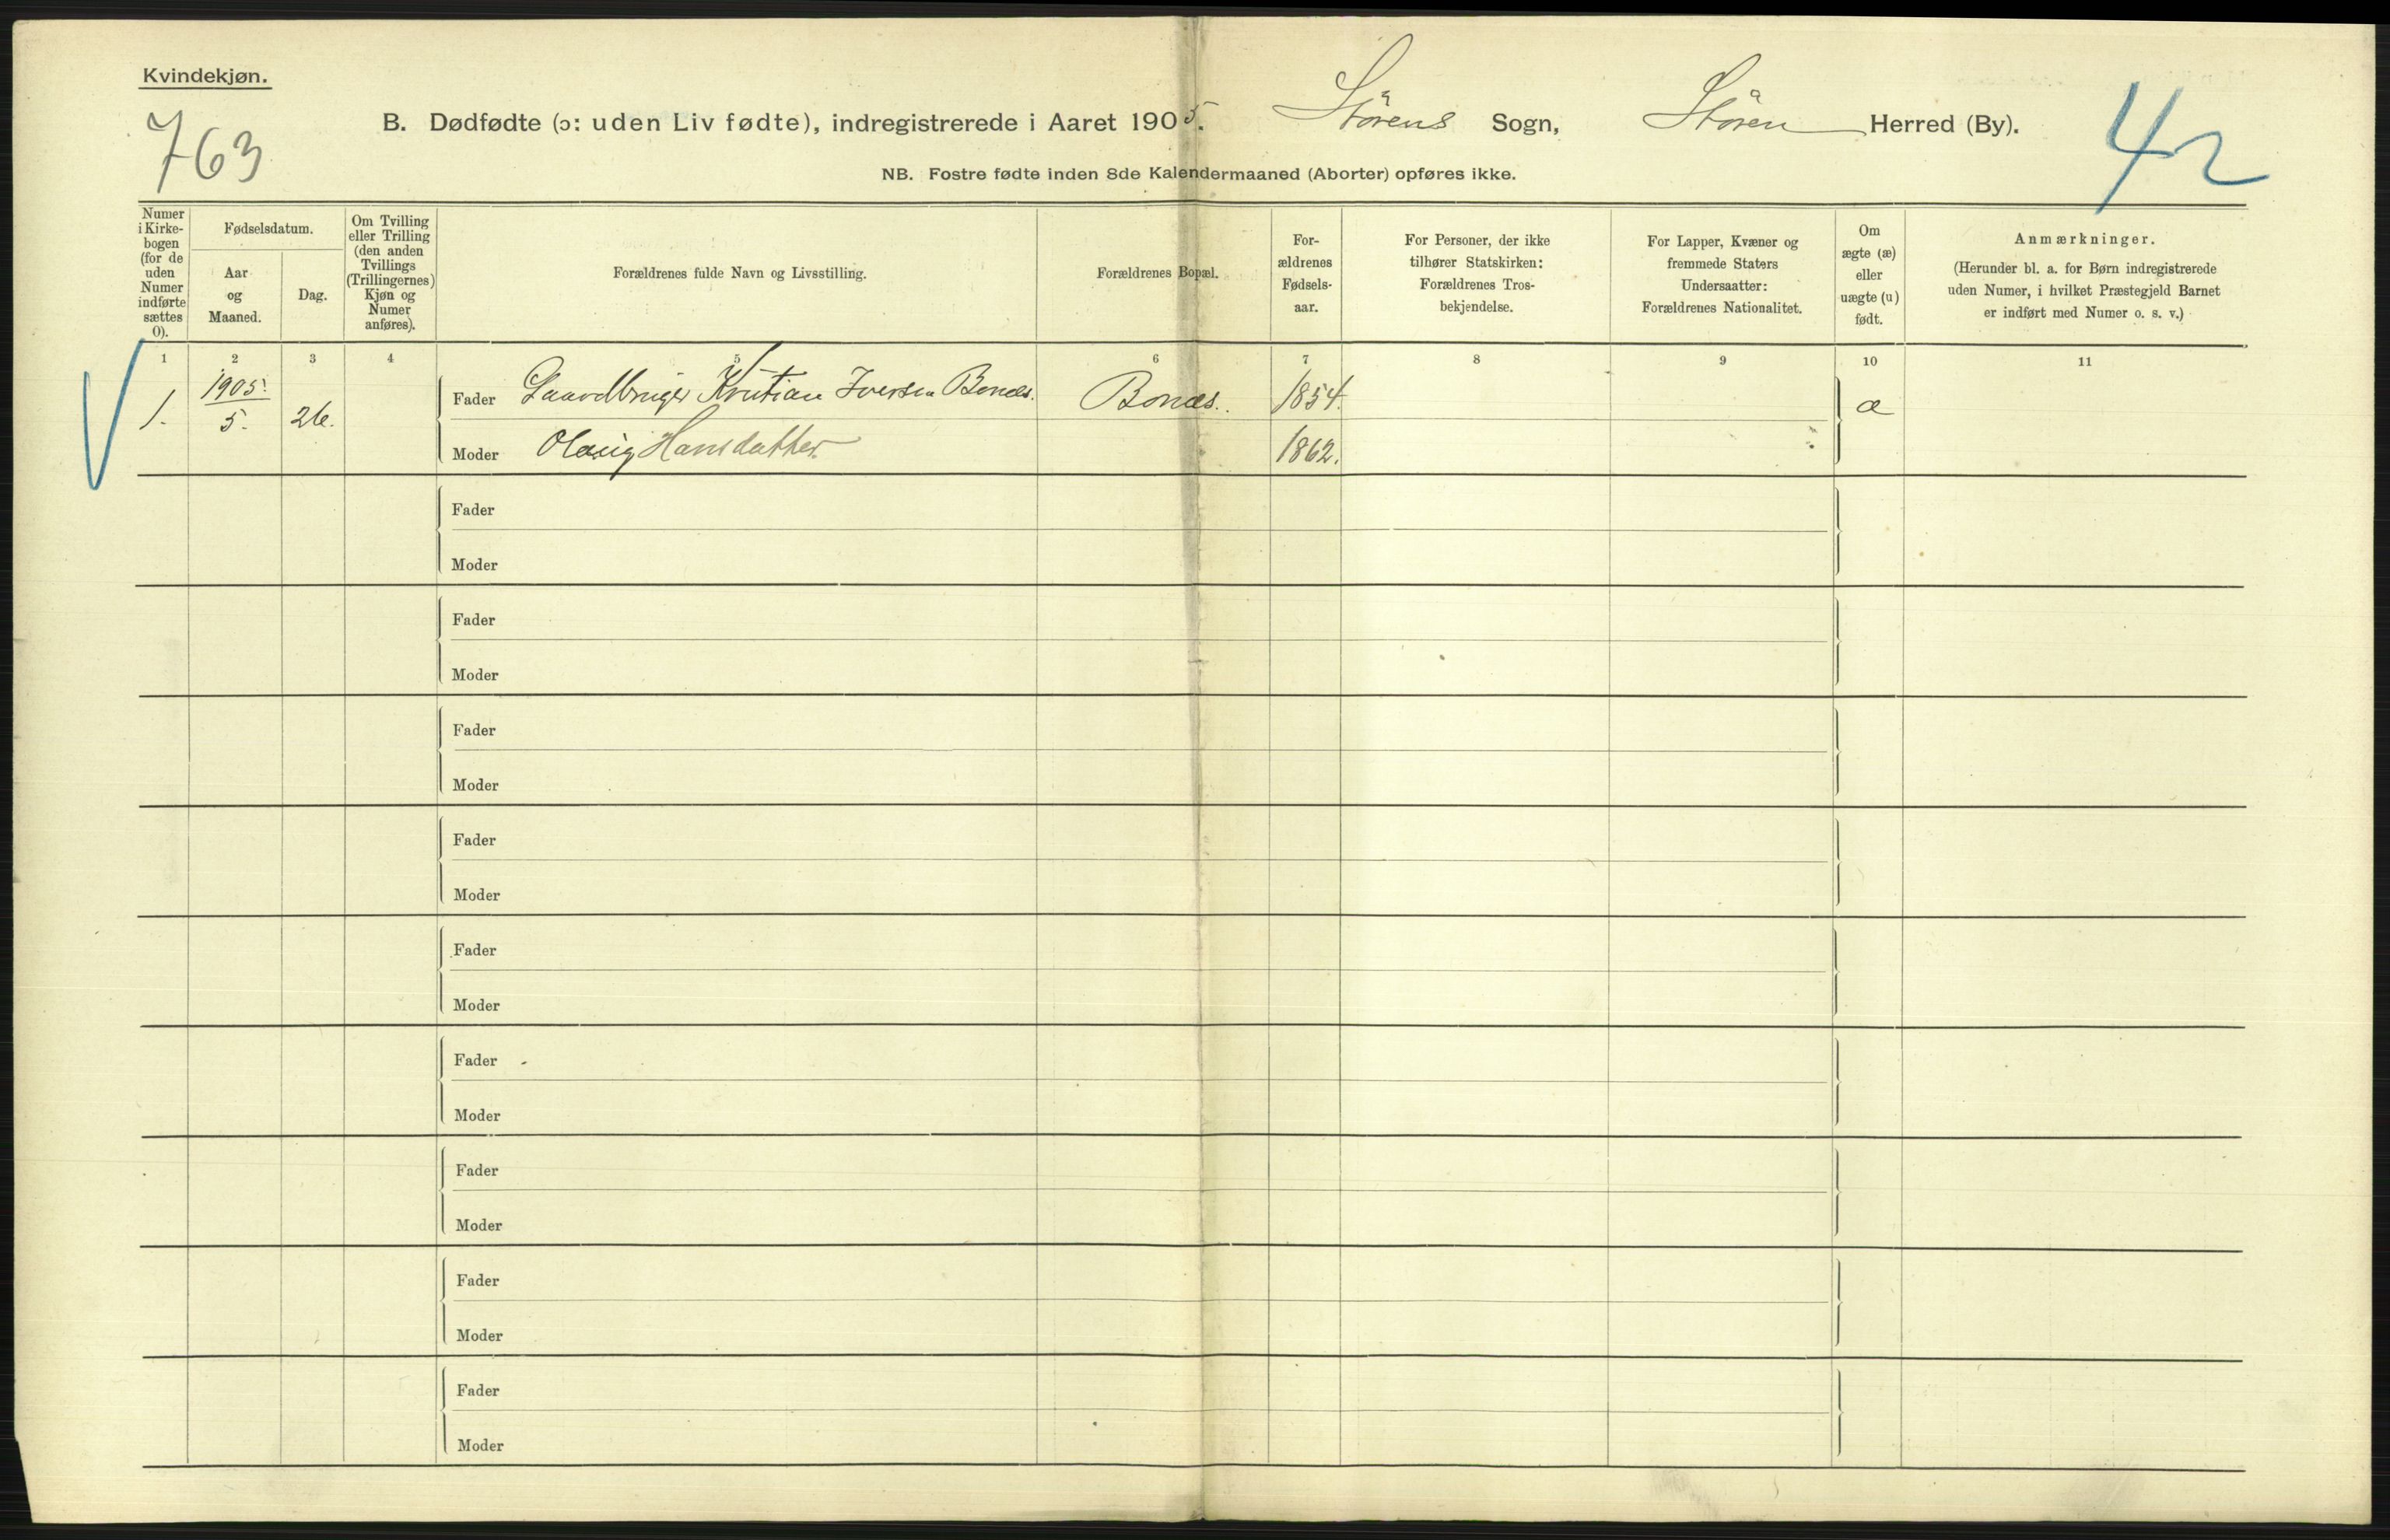 Kvindekjøn.
763
B. Dødfødte (ɔ: uden Liv fødte), indregistrerede i Aaret 1905. Störens Sogn, Stören Herred (By).
42
NB. Fostre fødte inden 8de Kalendermaaned (Aborter) opføres ikke.
Numer i Kirke- bogen (for de uden Numer indførte sættes 0).
Fødselsdatum.
Aar og Maaned.
Dag.
Om Tvilling eller Trilling (den anden Tvillings (Trillingernes) Kjøn og Numer anføres).
Forældrenes fulde Navn og Livsstilling.
Forældrenes Bopæl.
For- ældrenes Fødsels- aar.
For Personer, der ikke tilhører Statskirken: Forældrenes Tros- bekjendelse.
For Lapper, Kvæner og fremmede Staters Undersaatter: Forældrenes Nationalitet.
Om ægte (æ) eller uægte (u) født.
Anmærkninger. (Herunder bl. a. for Børn indregistrerede uden Numer, i hvilket Præstegjeld Barnet er indført med Numer o. s. v.)
1 2 3 4 5 6 7 8 9 10 11
1. 1905. 5. 26. Fader Gaardbruger Kristian Iversen Bones. Bones. 1854. æ
Moder Hansdatter. 1862.
Fader
Moder
Fader
Moder
Fader
Moder
Fader
Moder
Fader
Moder
Fader
Moder
Fader
Moder
Fader
Moder
Fader
Moder